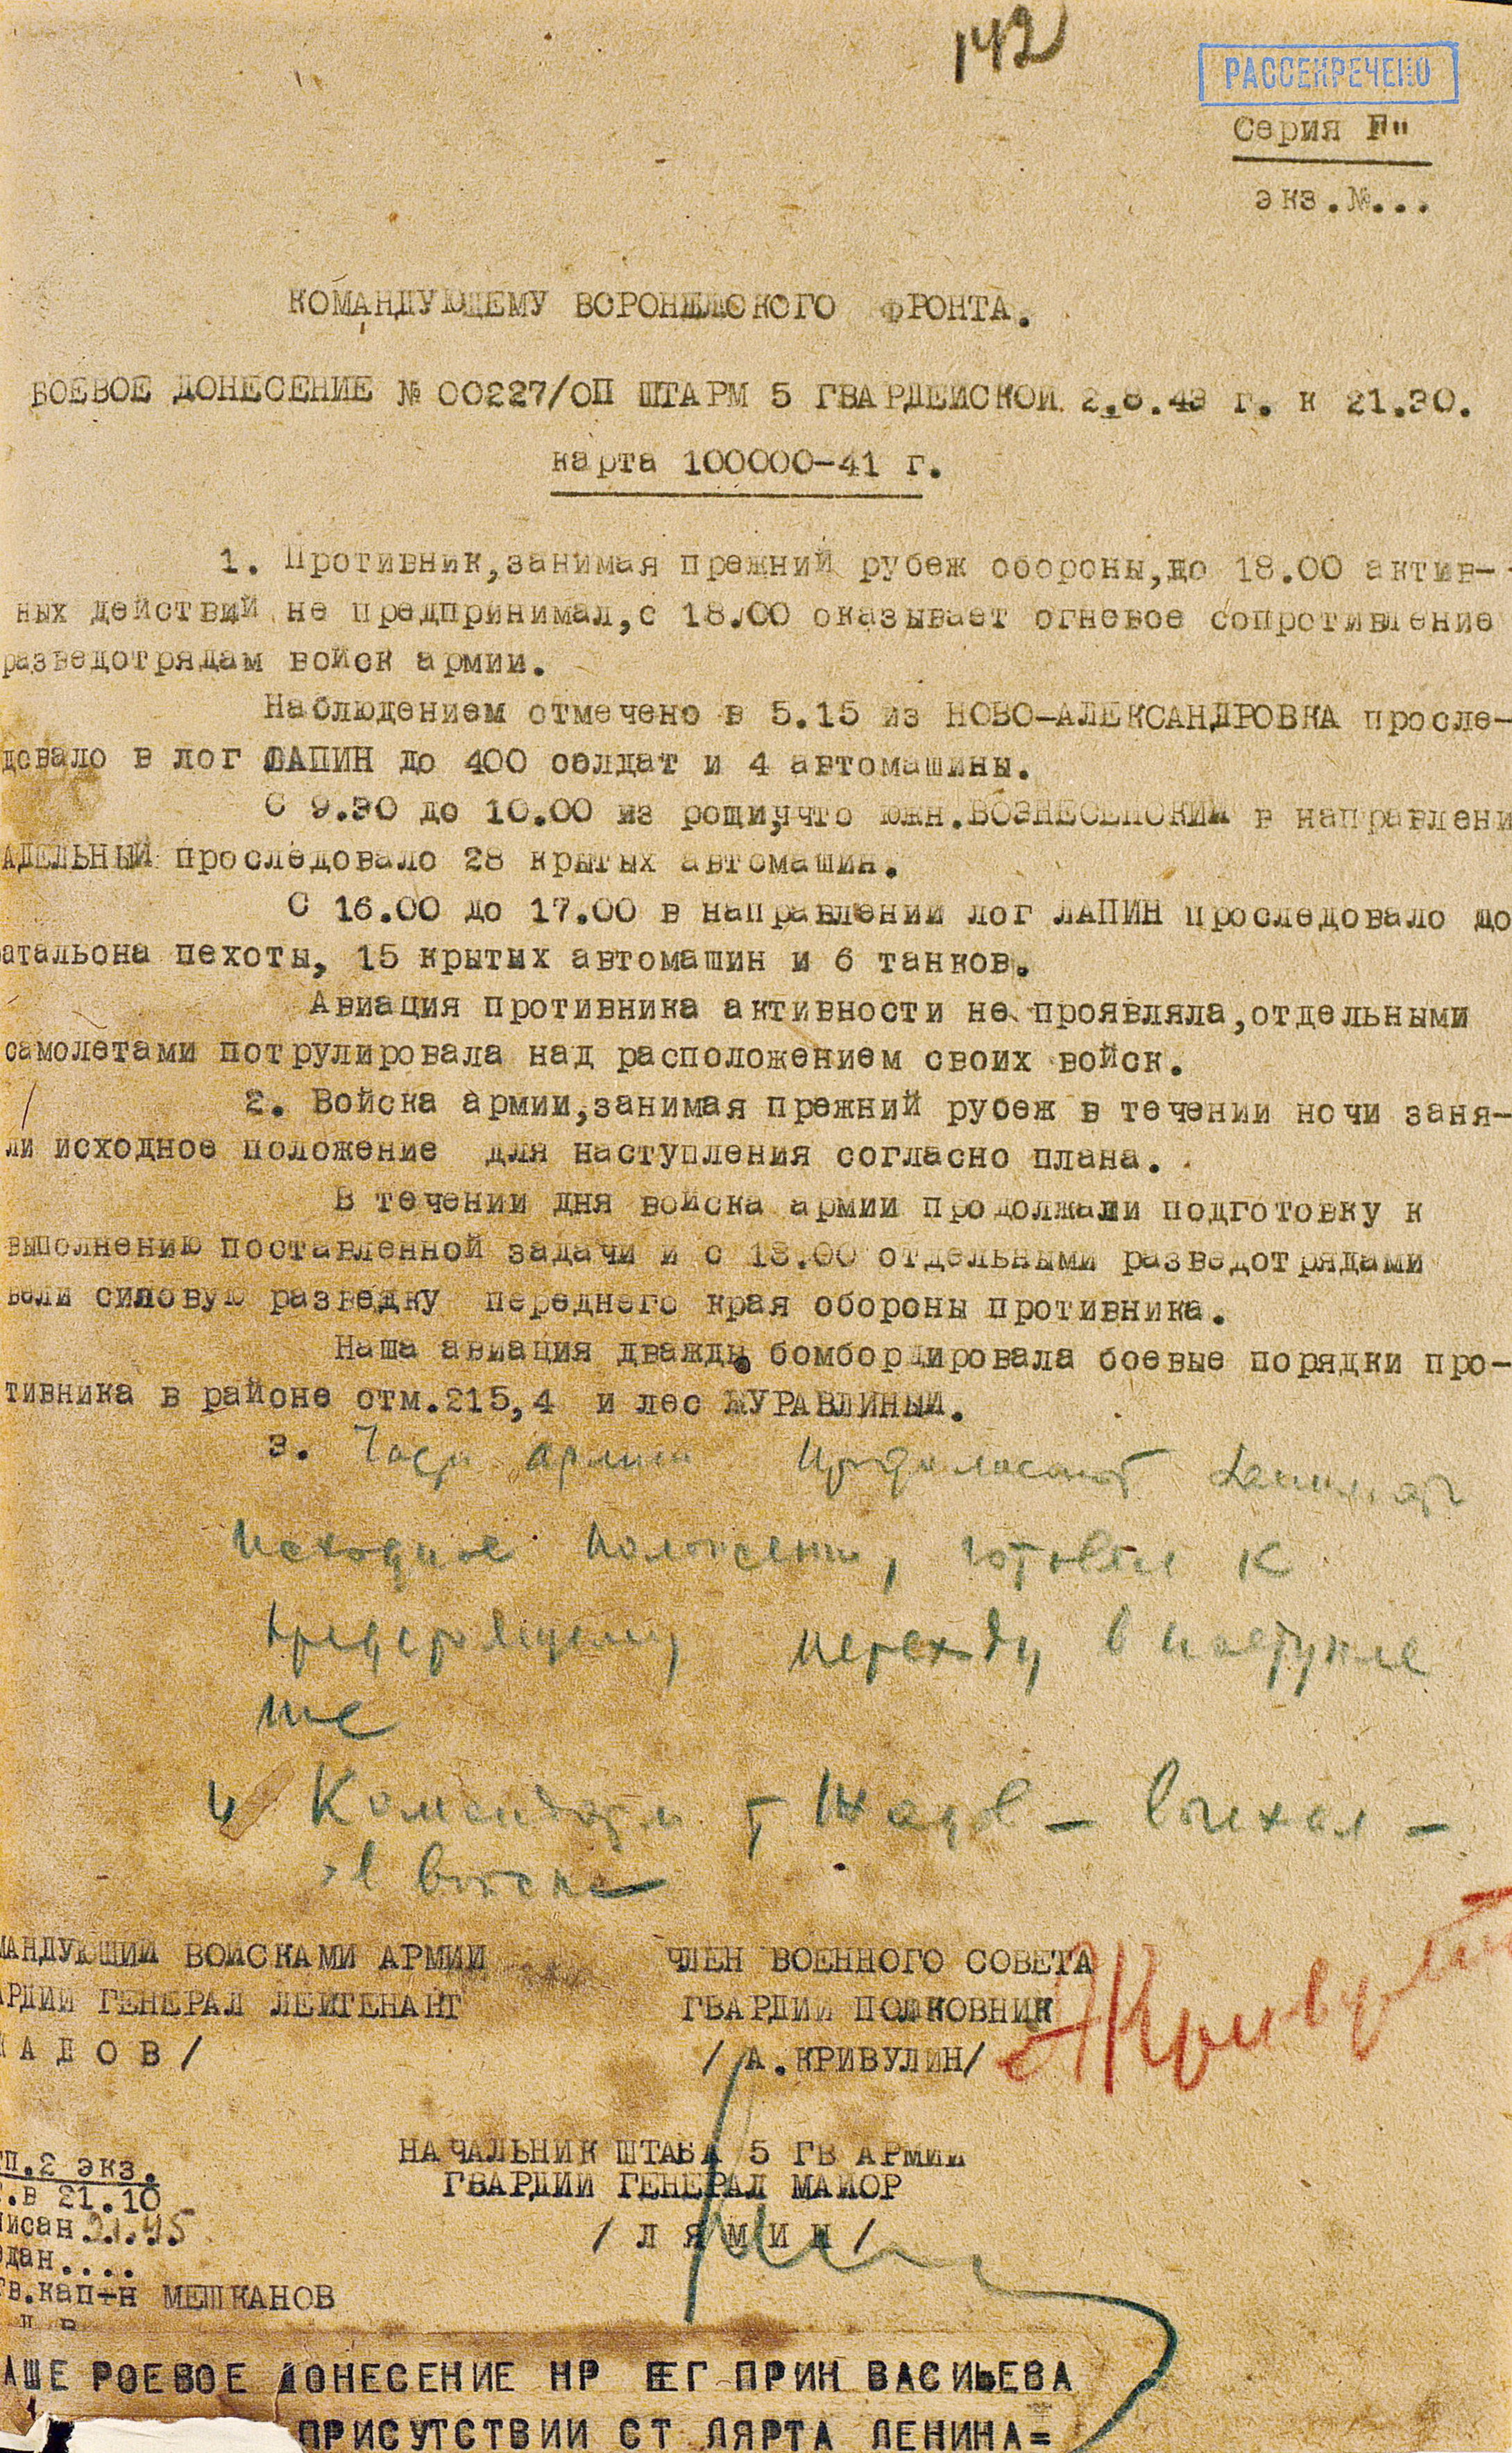 142
РАССЕКРЕЧЕНО
Серия Г"
экз.№...
КОМАНДУЮЩЕМУ ВОРОНЕЖСКОГО ФРОНТА.
БОЕВОЕ ДОНЕСЕНИЕ № 00227/ОП ШТАРМ 5 ГВАРДЕЙСКОЙ 2.8.43 г. к 21.30.
карта 100000-41 г.
1. Противник,занимая прежний рубеж обороны,до 18.00 актив-
ных действий не предпринимал,с 18.00 оказывает огневое сопротивление
разведотрядам войск армии.
Наблюдением отмечено в 5.15 из НОВО-АЛЕКСАНДРОВКА просле-
довало в лог ЛАПИН до 400 солдат и 4 автомашины.
С 9.30 до 10.00 из рощи,что южн.ВОЗНЕСЕНСКИЙ в направлени
АДЕЛЬНЫЙ проследовало 28 крытых автомашин.
С 16.00 до 17.00 в направлении лог ЛАПИН проследовало до
атальона пехоты, 15 крытых автомашин и 6 танков.
Авиация противника активности не проявляла,отдельными
самолетами потрулировала над расположением своих войск.
2. Войска армии,занимая прежний рубеж в течении ночи заня-
ли исходное положение для наступления согласно плана.
В течении дня войска армии продолжали подготовку к
выполнению поставленной задачи и с 18.00 отдельными разведотрядами
вели силовую разведку переднего края обороны противника.
Наша авиация дважды бомбордировала боевые порядки про-
тивника в районе отм.215,4 и лес ЖУРАВЛИНЫЙ.
3. Части армии продолжают занимать
исходное положение, готовые к
предстоящему переходу в наступле
ние
4 Командарм т Жадов – выехал –
в войска
МАНДУЮЩИЙ ВОЙСКАМИ АРМИИ
АРДИИ ГЕНЕРАЛ ЛЕЙТЕНАНТ
ЖАДОВ/
ЧЛЕН ВОЕННОГО СОВЕТА
ГВАРДИИ ПОЛКОВНИК
/А.КРИВУЛИН/
АКривулин
НАЧАЛЬНИК ШТАБА 5 ГВ АРМИИ
ГВАРДИИ ГЕНЕРАЛ МАЙОР
/ЛЯМИН/
п.2 экз.
.в 21.10
исан 21.45
дан....
Гв.кап-н МЕШКАНОВ
АШЕ РОЕВОЕ ДОНЕСЕНИЕ НР ЕГ ПРИН ВАСИЬЕВА
ПРИСУТСТВИИ СТ ЛЯРТА ЛЕНИНА=